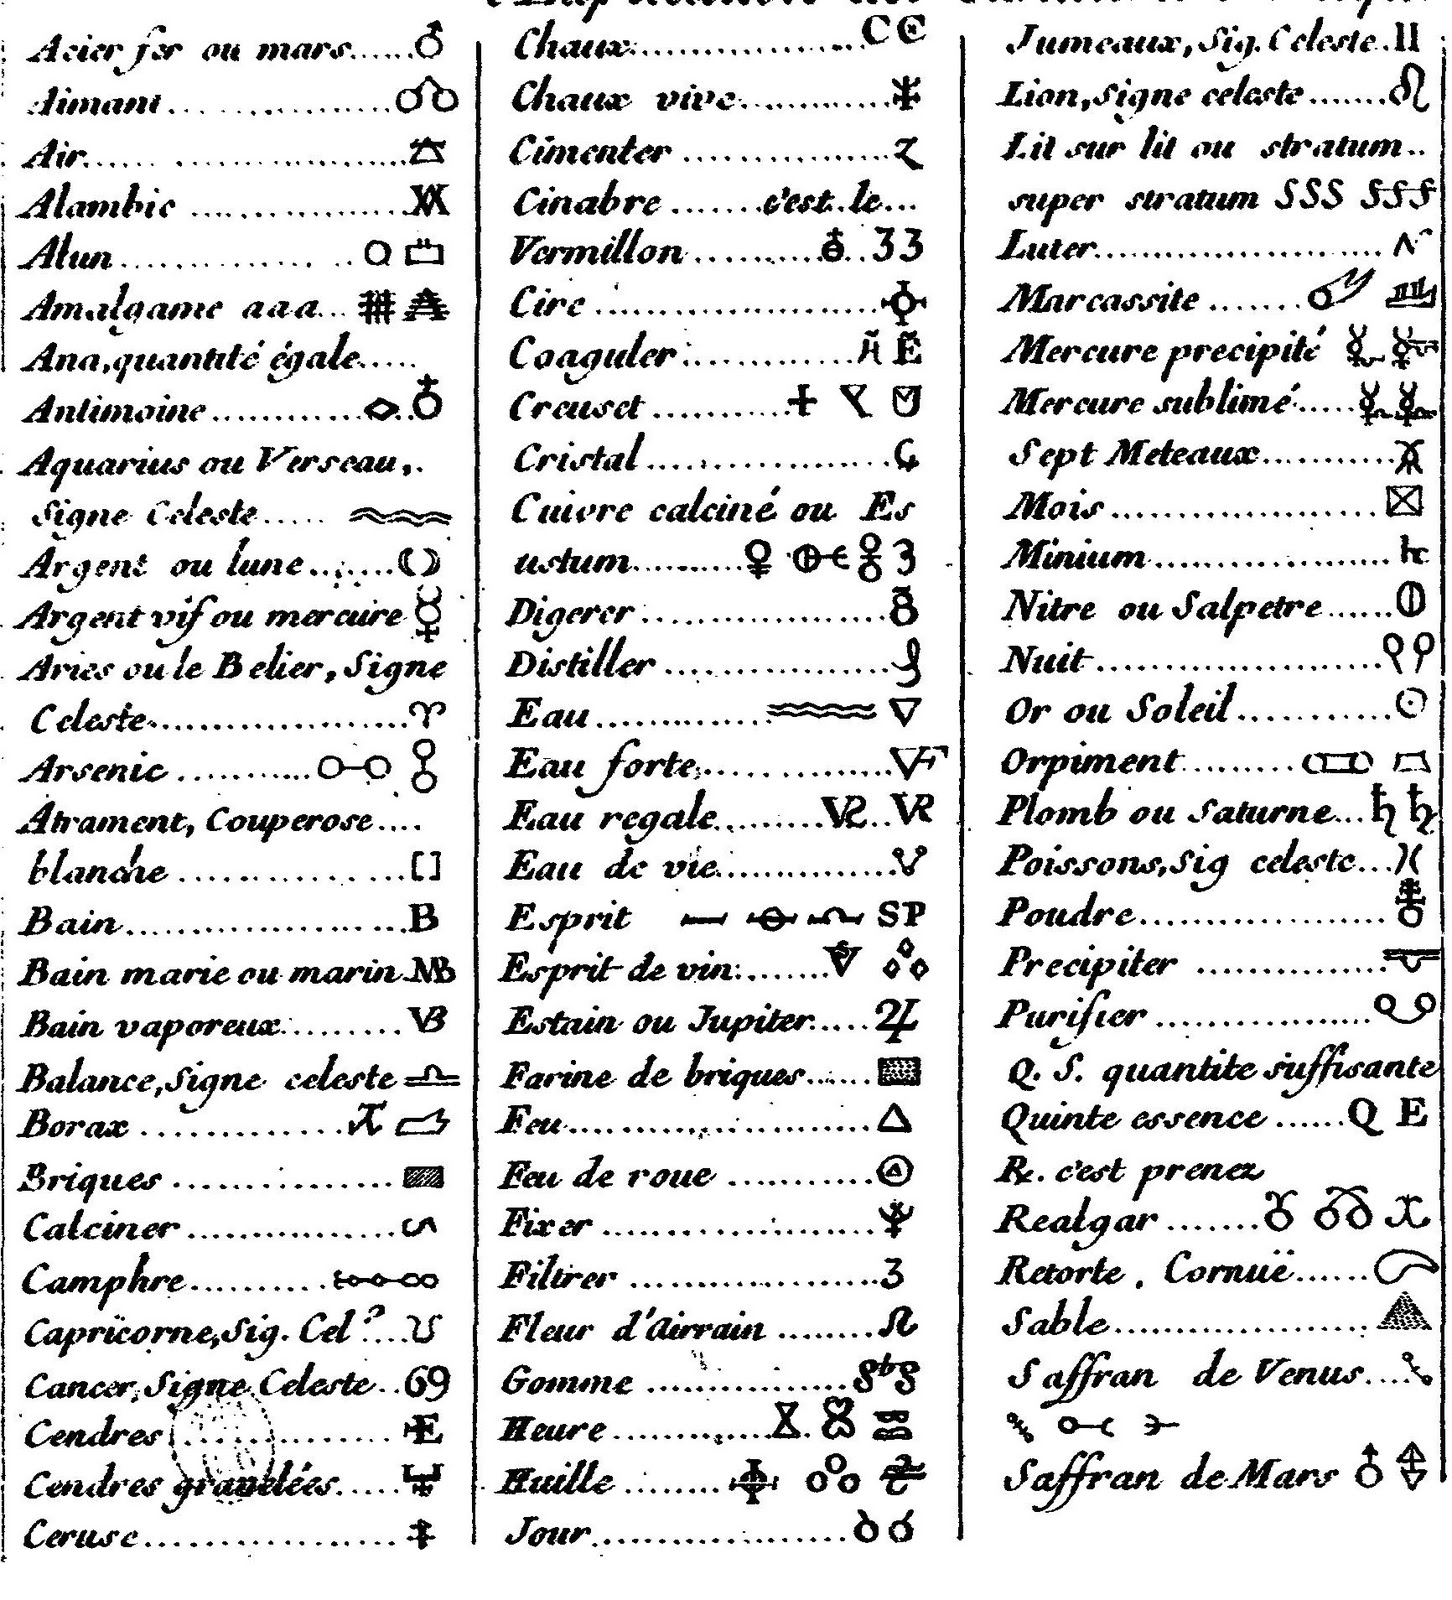 Acier fer ou mars......♂
Aimant
Air
Alambic
Alun
Amalgame aaa
Ana, quantité égale.....
Antimoine
Aquarius ou Verseau,.
Signe Celeste
Argent ou lune
Argent vif ou mercure ☿
Aries ou le Belier, Signe
Celeste ♈
Arsenic
Atrament, Couperose....
blanche [ ]
Bain B
Bain marie ou marin MB
Bain vaporeux VB
Balance, Signe celeste ♎
Borax
Briques
Calciner
Camphre
Capricorne, Sig. Cel?
Cancer, Signe Celeste 69
Cendres E
Cendres gravelées
Ceruse
Chaux C C
Chaux vive
Cimenter
Cinabre c'est le...
Vermillon 33
Cire
Coaguler
Creuset
Cristal
Cuivre calciné ou Es
ustum ♀ 3
Digerer
Distiller
Eau ▽
Eau forte ▽F
Eau regale VR VR
Eau de vie
Esprit SP
Esprit de vin
Estain ou Jupiter ♃
Farine de briques
Feu △
Feu de roue
Fixer
Filtrer 3
Fleur d'Airrain
Gomme
Heure
Huille
Jour
Jumeaux, Sig. Celeste II
Lion, Signe celeste ♌
Lit sur lit ou stratum..
super stratum SSS SSS
Luter
Marcassite
Mercure precipité
Mercure sublimé
Sept Meteaux
Mois
Minium
Nitre ou Salpetre
Nuit
Or ou Soleil ☉
Orpiment
Plomb ou Saturne ♄ ♄
Poissons, Sig celeste )(
Poudre
Precipiter
Purifier
Q. S. quantite suffisante
Quinte essence Q E
℞. c'est prenez
Realgar
Retorte, Cornuë
Sable
Saffran de Venus
Saffran de Mars